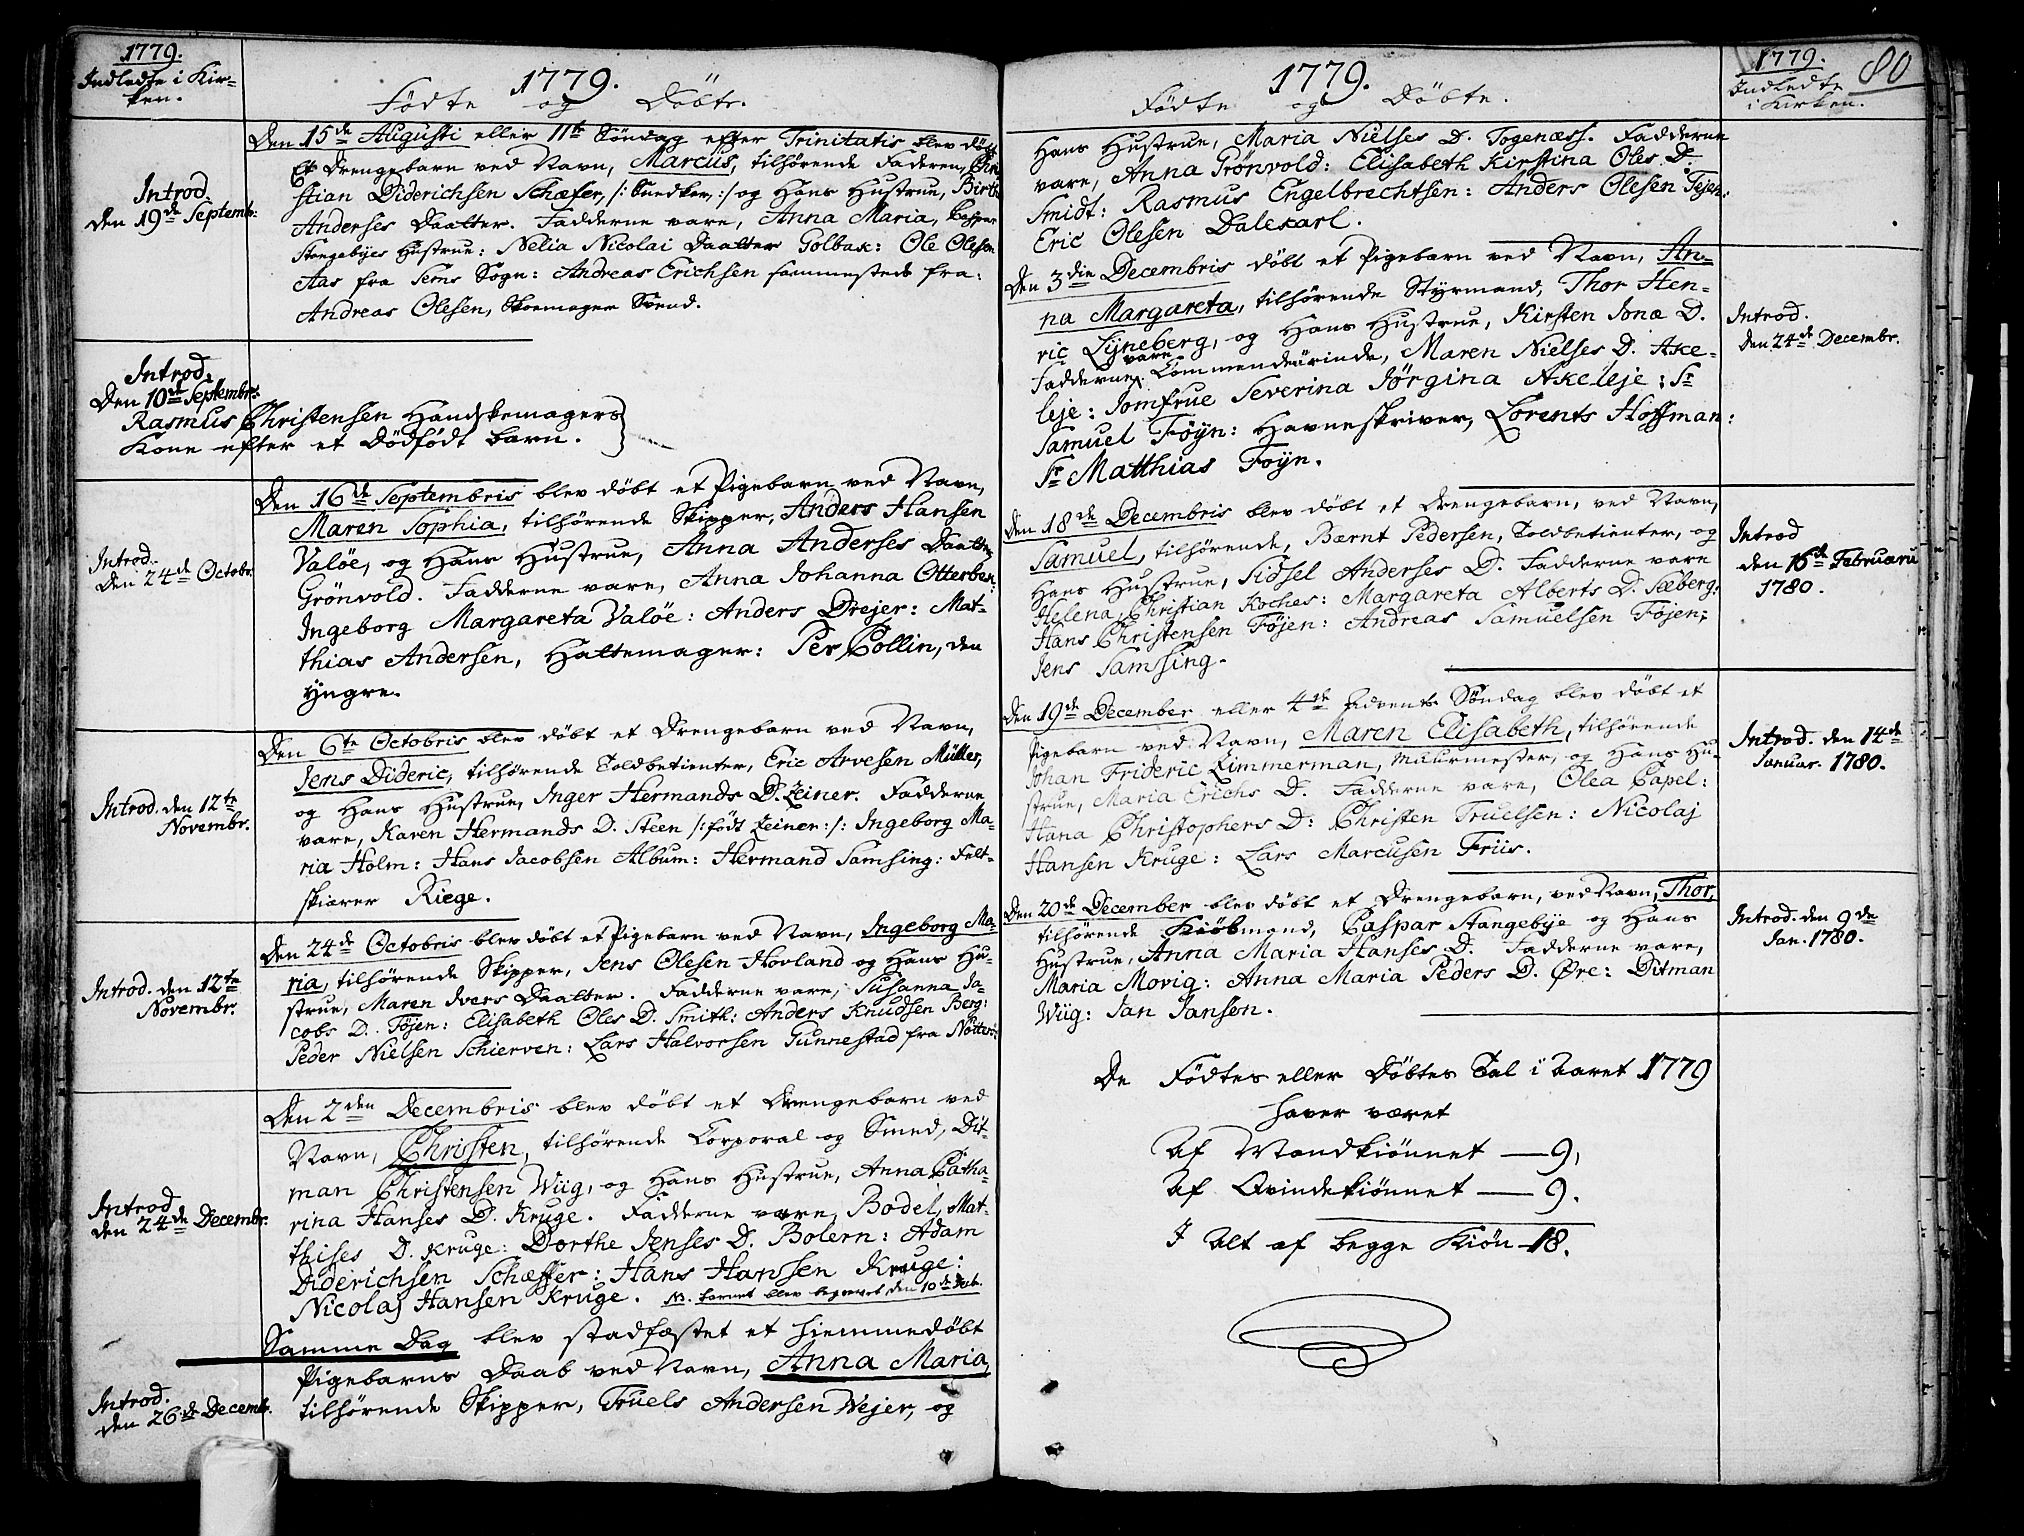 1779.
Indledte i Kir-
ken.
1779.
Fødte og Døbte.
Den 15de Augusti eller 11te Søndag efter Trinitatis blev døbt
Et Drengebarn ved Navn, Marcus, tilhørende Faderen, Chri-
stian Diderichsen Schæfer, /: Snedker, :/ og Hans Hustrue, Birthe
Anderses Daatter. Fadderne vare, Anna Maria, Casper
Stangebyes Hustrue: Nelia Nicolai Daatter Golbak: Ole Olesen
Aas fra Sems Sogn: Andreas Erichsen sammesteds fra:
Andreas Olesen, Skoemager Svend.
Introd.
den 19de Septemb:
Introd.
Den 10de Septembr:
Rasmus Christensen Handskemagers
Kone efter et Dødfødt barn.
Den 16de Septembris blev døbt et Pigebarn ved Navn,
Maren Sophia, tilhørende Skipper, Anders Hansen
Valøe, og Hans Hustrue, Anna Anderses Daatter
Grönvold. Fadderne vare, Anna Johanna Otterbek:
Ingeborg Margareta Valøe: Anders Drejer: Mat-
thias Andersen, Hattemager: Per Collin, den
yngre.
Introd.
den 24de Octobr.
Den 6te Octobris blev døbt et Drengebarn ved Navn,
Jens Dideric, tilhørende Toldbetienter, Eric Arvesen Müller,
og Hans Hustrue, Inger Hermands D. Zeiner. Fadderne
vare, Karen Hermands D. Steen /: født Zeiner :/: Ingeborg Ma-
ria Holm: Hans Jacobsen Album: Hermand Samsing: Felt-
skiærer Riege.
Introd. den 12te
Novembr.
Den 24de Octobris blev døbt et Pigebarn ved Navn, Ingeborg Ma-
ria, tilhørende Skipper, Jens Olesen Hovland og Hans Hu-
strue, Maren Ivers Daatter. Fadderne vare, Susanna Ja-
cobs D. Føjen: Elisabeth Oles D. Smith: Anders Knudsen Berg:
Peder Nielsen Schierven: Lars Halvorsen Gunnestad fra Nøtterö:
Introd. den 12te
Novembr.
Den 2den Decembris blev døbt et Drengebarn ved
Navn, Christen, tilhørende Corporal og Smed, Dit-
man Christensen Wiig, og Hans Hustrue, Anna Catha-
rina Hanses D. Kruge. Fadderne vare, Bodel, Mat-
thises D. Kruge: Dorthe Jenses D. Bolern: Adam
Diderichsen Schæffer: Hans Hanssen Kruge:
Nicolaj Hansen Kruge. NB. barnet blev begravet den 10de Decb.
Introd.
den 24de Decembr.
Samme Dag blev stadfæstet et hiemmedøbt
Pigebarns Daab ved Navn, Anna Maria,
tilhørende Skipper, Truels Andersen Wejer, og
Introd.
den 26de Decembr.
1779.
Fødte og Døbte.
1779.
Indledte
i Kirken.
80
Hans Hustrue, Maria Nielses D. Togenæss. Fadderne
vare, Anna Grönvold: Elisabeth Kirstina Oles D.
Smidt: Rasmus Engelbrechtsen: Anders Olesen Tejen:
Eric Olesen Dalekarl.
Den 3die Decembris døbt et Pigebarn ved Navn, An-
na Margareta, tilhørende Styrmand, Thor Hen-
ric Lyneberg, og Hans Hustrue, Kirsten Jonæ D.
Fadderne vare Commendeurinde, Maren Nielses D. Ake-
leje: Jomfrue Severina Jörgina Akeleje: Sr
Samuel Føyn: Havneskriver, Lorents Hoffman:
Sr Matthias Foyn.
Introd.
den 24de Decembr.
Den 18de Decembris blev døbt et Drengebarn, ved Navn,
Samuel, tilhørende, Bærnt Pedersen, Toldbetienter, og
Hans Hustrue, Sidsel Anderses D. Fadderne vare
Helena, Christian Koches: Margareta Alberts D. Sæberg:
Hans Christensen Føjen: Andreas Samuelsen Føjen:
Jens Samsing.
Introd
den 16de Februarii
1780.
Den 19de December eller 4de Advents Søndag blev døbt et
Pigebarn ved Navn, Maren Elisabeth, tilhørende
Johan Frideric Zimmerman, Muurmester, og Hans Hu-
strue, Maria Erichs D. Fadderne vare, Olea Capel:
Hana Christophers D: Christen Truelsen: Nicolaj
Hansen Kruge: Lars Marcusen Friis.
Introd. den 14de
Januar. 1780.
Den 20de December blev døbt et Drengebarn, ved Navn, Thor,
tilhørende Kiöbmand, Caspar Stangebye og Hans
Hustrue, Anna Maria Hanses D. Fadderne vare,
Maria Movig: Anna Maria Peders D. Øre: Ditman
Wiig: Jan Jansen.
Introd. den 9de
Jan. 1780.
De Fødtes eller Döbtes Tal i Aaret 1779
haver været
Af Mandkiønnet — 9,
Af Qvindekiønnet — 9.
I Alt af begge Kiön — 18.